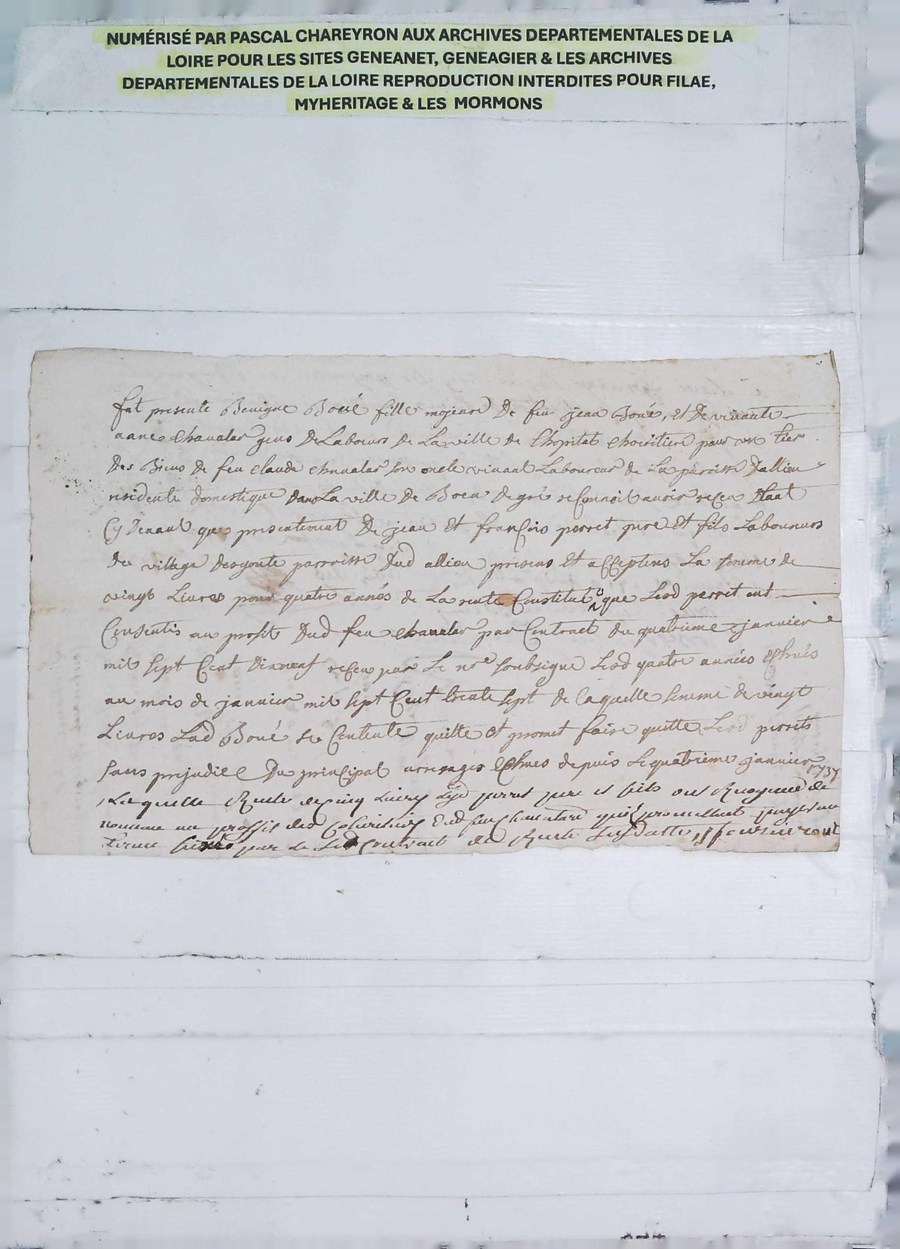 NUMÉRISÉ PAR PASCAL CHAREYRON AUX ARCHIVES DEPARTEMENTALES DE LA
LOIRE POUR LES SITES GENEANET, GENEAGIER & LES ARCHIVES
DEPARTEMENTALES DE LA LOIRE REPRODUCTION INTERDITES POUR FILAE,
MYHERITAGE & LES MORMONS
fut presente Benigne Boué fille majeure de feu jean Boué, et de vivante
anne Chavalar gens de Labours de La ville de l'hopital pour un tier
des Biens de feu Claude Chavalar son oncle vivant Laboureur de La paroisse Dallieu
residente domestique dans La ville de Boen de gré reconnoit avoir receu tant
Cy devant que presentement de jean et françois perret pere et fils Laboureurs
du village paroisse dud allieu presens et acceptens La somme de
vingt Livres pour quatre années de La rente Constitué que Lesd perret ont
Consentis au profit dud feu Chavalar par Contract du quatrieme janvier
mil sept Cent dixneuf receu par Le nre soubsigné Lesd quatre années echues
au mois de janvier mil sept Cent trente sept de laquelle somme de vingt
Livres Lad Boué se Contente quitte et promet faire quitte Lesd perrets
sans prejudice du principal arrerages echues depuis Le quatrieme janvier 1737
Laquelle Rente de cinq Livres Lesd perret pere et fils ont
au proffit des promettant payer
par le Contract de Rente